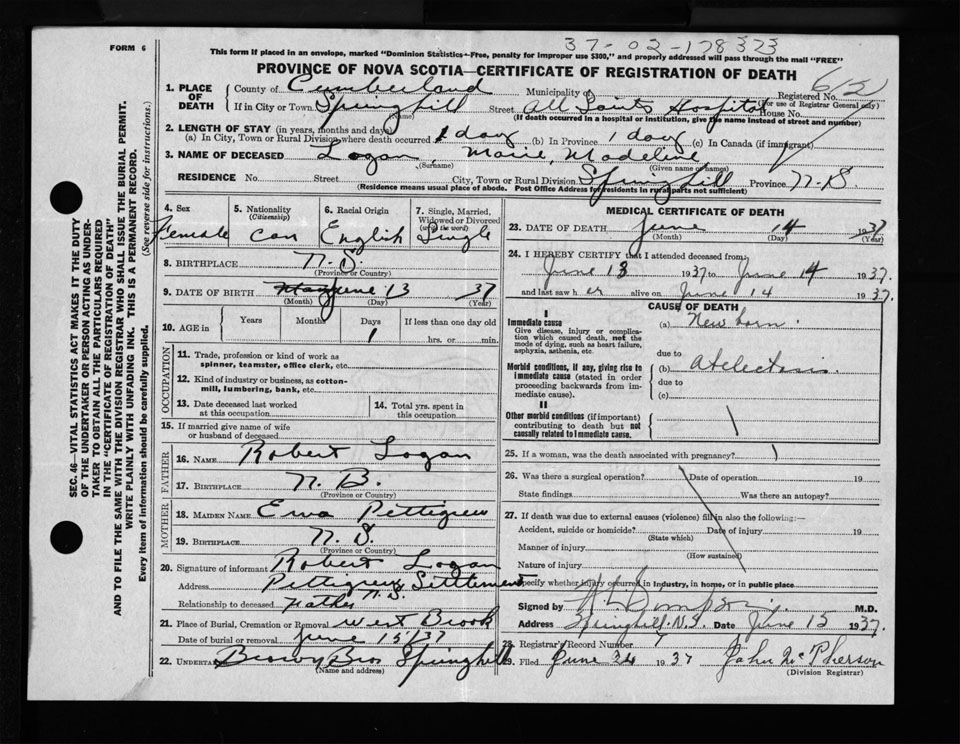 37-02-178373
FORM 6
This form if placed in an envelope, marked "Dominion Statistics-Free, penalty for improper use $300," and properly addressed will pass through the mail "FREE"
PROVINCE OF NOVA SCOTIA—CERTIFICATE OF REGISTRATION OF DEATH
1. PLACE OF DEATH County of Cumberland Municipality of Registered No.
(For use of Registrar General only)
If in City or Town Springhill Street All Saints Hospital House No.
(Name) (If death occurred in a hospital or institution, give the name instead of street and number)
2. LENGTH OF STAY (in years, months and days)
(a) In City, Town or Rural Division where death occurred 1 day (b) In Province 1 day (c) In Canada (if immigrant)
3. NAME OF DECEASED Logan, Marie, Madeline
(Surname) (Given name or names)
RESIDENCE No. Street City, Town or Rural Division Springhill Province N.S.
(Residence means usual place of abode. Post Office Address for residents in rural parts not sufficient)
4. Sex Female
5. Nationality (Citizenship) Can
6. Racial Origin English
7. Single, Married, Widowed or Divorced (write the word) Single
8. BIRTHPLACE N.S.
(Province or Country)
9. DATE OF BIRTH May June 13 37
(Month) (Day) (Year)
10. AGE in Years Months Days 1 If less than one day old hrs. or min.
OCCUPATION
11. Trade, profession or kind of work as spinner, teamster, office clerk, etc.
12. Kind of industry or business, as cotton-mill, lumbering, bank, etc.
13. Date deceased last worked at this occupation
14. Total yrs. spent in this occupation
15. If married give name of wife or husband of deceased
FATHER
16. NAME Robert Logan
17. BIRTHPLACE N.B.
(Province or Country)
MOTHER
18. MAIDEN NAME Eva Pettigrew
19. BIRTHPLACE N.S.
(Province or Country)
20. Signature of informant Robert Logan
Address Pettigrew Settlement N.S.
Relationship to deceased Father
21. Place of Burial, Cremation or Removal West Brook
Date of burial or removal June 15/37
22. UNDERTAKER Brown Bros Springhill
(Name and address)
MEDICAL CERTIFICATE OF DEATH
23. DATE OF DEATH June 14 1937
(Month) (Day) (Year)
24. I HEREBY CERTIFY that I attended deceased from
June 13 1937 to June 14 1937.
and last saw her alive on June 14 1937.
CAUSE OF DEATH
I
Immediate cause
Give disease, injury or complication which caused death, not the mode of dying, such as heart failure, asphyxia, asthenia, etc.
(a) New born.
due to
Morbid conditions, if any, giving rise to immediate cause (stated in order proceeding backwards from immediate cause).
(b) Atelectasis.
due to
(c)
II
Other morbid conditions (if important) contributing to death but not causally related to immediate cause.
25. If a woman, was the death associated with pregnancy?
26. Was there a surgical operation? Date of operation 19
State findings Was there an autopsy?
27. If death was due to external causes (violence) fill in also the following:—
Accident, suicide or homicide? Date of injury 19
(State which)
Manner of injury
(How sustained)
Nature of injury
Specify whether injury occurred in industry, in home, or in public place
Signed by M.D.
Address Springhill. N.S. Date June 15 1937.
28. Registrar's Record Number
29. Filed June 1937 John McPherson
(Division Registrar)
SEC. 46—VITAL STATISTICS ACT MAKES IT THE DUTY OF THE UNDERTAKER OR PERSON ACTING AS UNDERTAKER TO OBTAIN ALL THE PARTICULARS REQUIRED IN THE "CERTIFICATE OF REGISTRATION OF DEATH"
AND TO FILE THE SAME WITH THE DIVISION REGISTRAR WHO SHALL ISSUE THE BURIAL PERMIT.
WRITE PLAINLY WITH UNFADING INK. THIS IS A PERMANENT RECORD.
Every item of information should be carefully supplied. (See reverse side for instructions.)